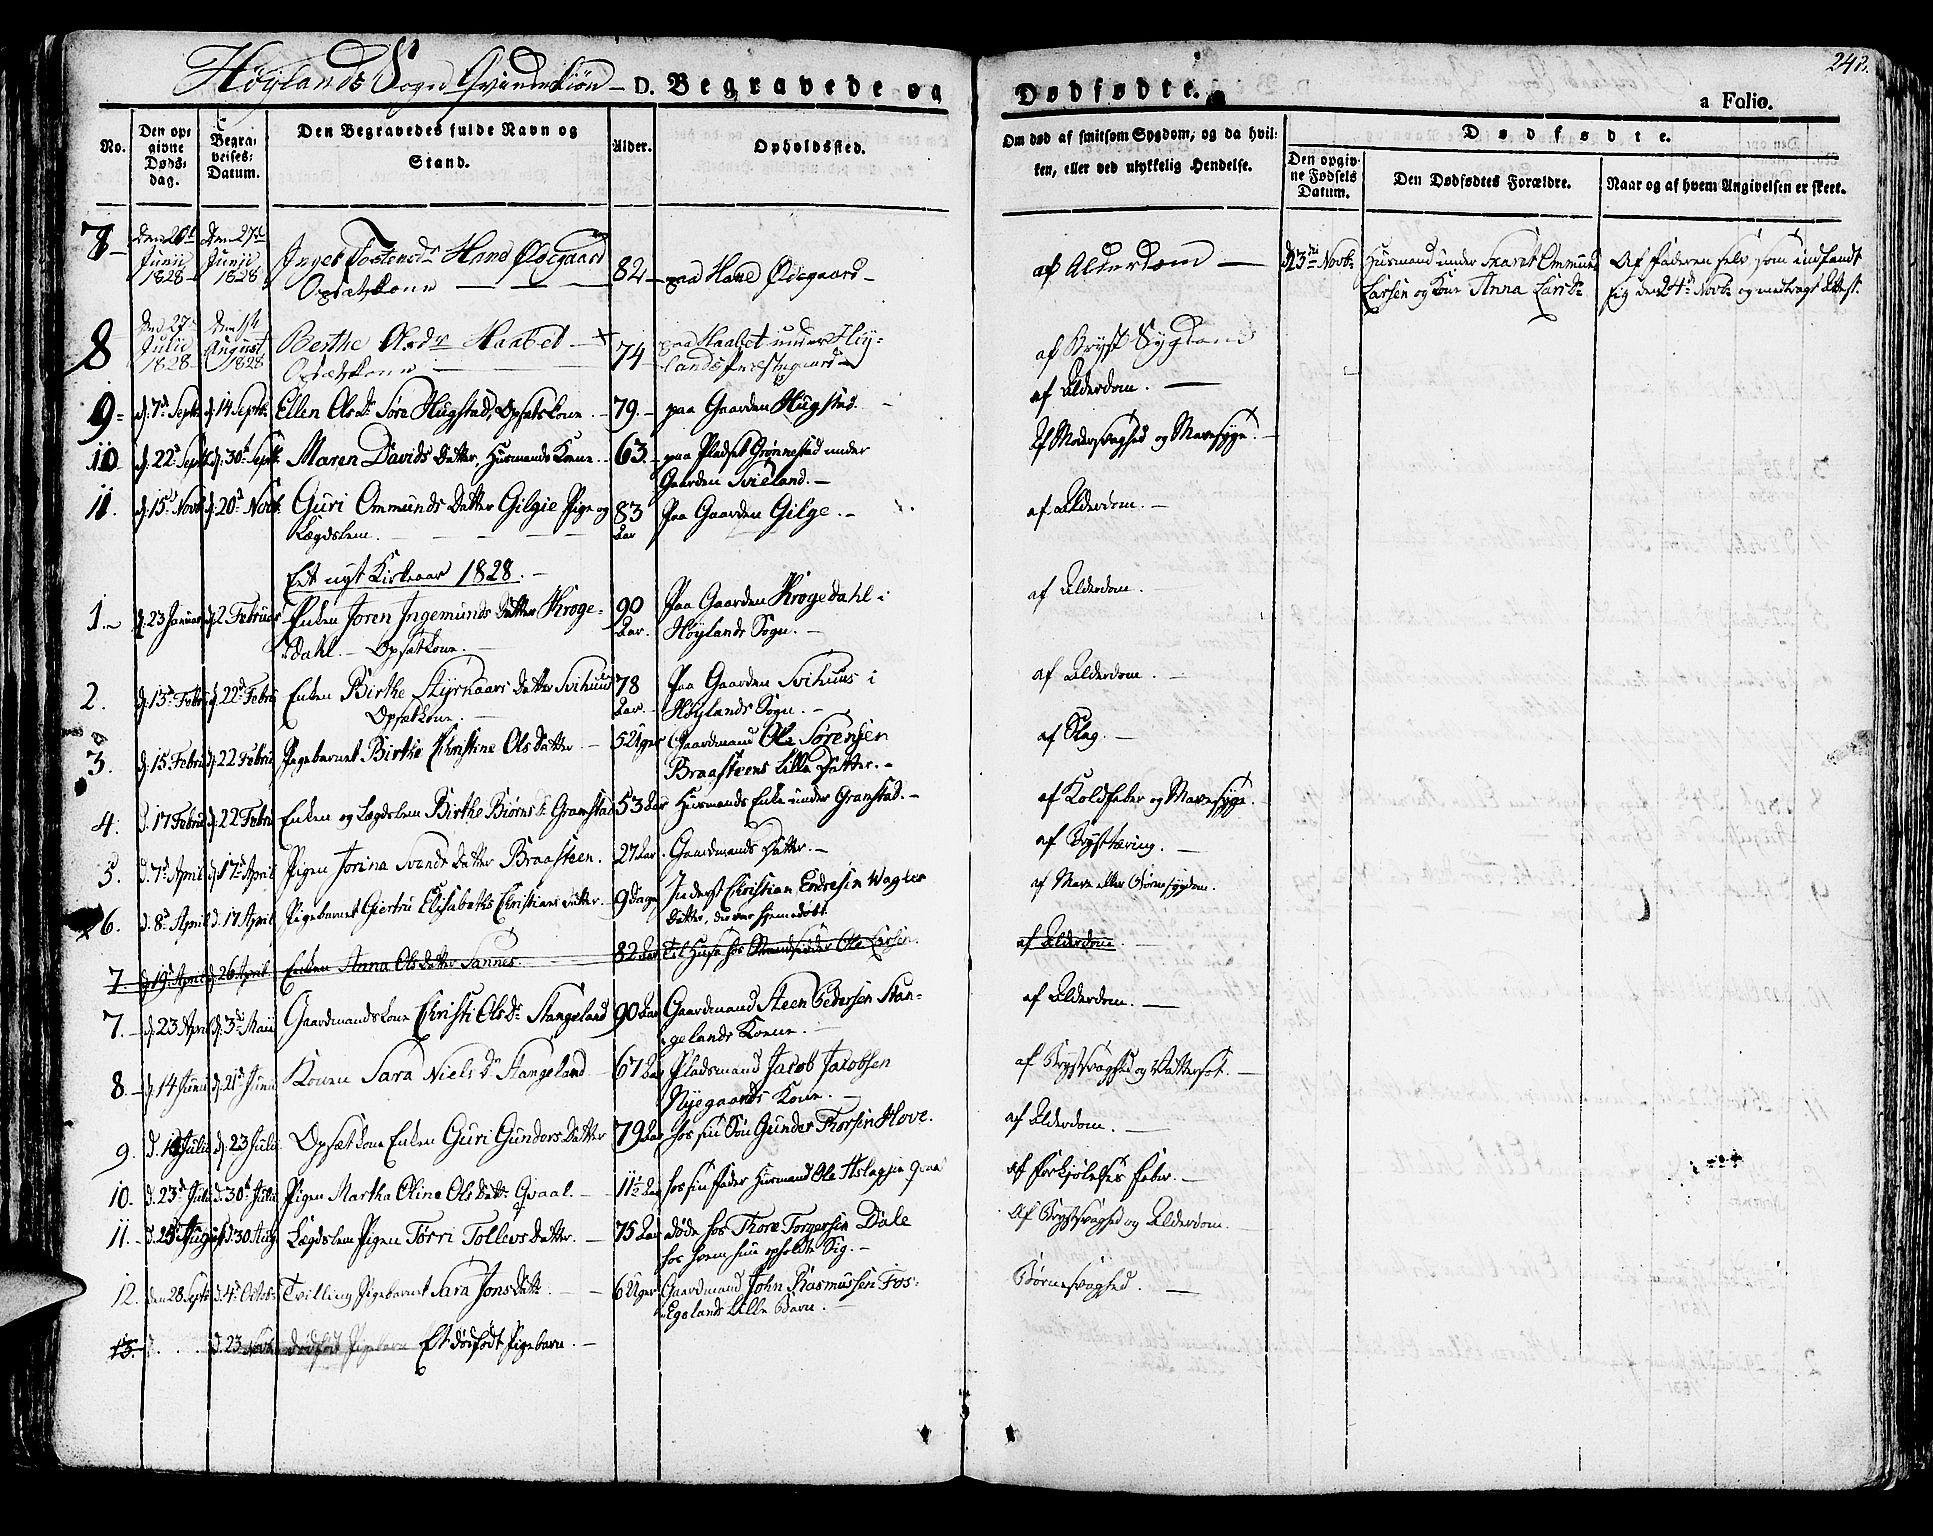 Høylands Sogn Qvindekiøn – D. Begravede og
Dødfødte.
242.
a Folio.
No.
Den opgivne Døds-dag.
Begravelses-Datum.
Den Begravedes fulde Navn og Stand.
Alder.
Opholdssted.
Om død af smitsom Sygdom, og da hvilken, eller ved ulykkelig Hendelse.
Dødfødte.
Den opgivne Fødsels Datum.
Den Dødfødtes Forældre.
Naar og af hvem Angivelsen er skeet.
7 – Junii 1828 – Den 27de Junii 1828 Hane Ødegaard Opsætskone 82 – paa Hane Ødegaard – af Alderdom –
d. 23de Novbr Huusmand under Ommund Larsen og Kone Anna Larsdr. Af Faderen selv som indfandt sig den 24de Novbr og modtog Attest.
8 Den 27 Julii 1828 August 1828 Berthe Haabet – Opsætskone – 74 – paa Haabet under Høylands Præstegaard – af Bryst Sygdom
9 – d. 7de Septb d. 14 Septbr Ellen Olsdr Søre Hugstad, Opsætskone – 79. – paa Gaarden Hugstad. – af Alderdom. –
10 d. 22de Septb d. 30te Septb Maren Davids Datter, Huusmands Kone. 63. – paa Pladset Grønnestad under Gaarden Svieland. – Af Moderswaghed og Mavesyge. –
11. d. 15de Novb d. 20de Novb. Guri Ommunds Datter Gilgie Pige og Lægdslem. – 83 Aar Paa Gaarden Gilge. – af Alderdom. –
Et nyt Kirkeaar 1828. –
1. – d. 23 Januar d. 2 Februar Enken Joren Ingemunds Datter Krogedahl. – Opsætkone. – 90 Aar. Paa Gaarden Krogedahl i Høylands Sogn. – af Alderdom. –
2. d. 13de Febru d. 22de Febru Enken Birthe Styrkaars Datter Svihuus Opsætkone. – 78 Aar. – Paa Gaarden Svihuus i Høylands Sogn. – af Alderdom. –
3. d. 15 Febru d. 22 Febru Pigebarnet Birthe Christine Ols Datter. – 5 Uger Gaardmand Ole Sørensen Braasteens Lille Datter. – af Slag. –
4. d. 17 Febru d. 22 Febru Enken og Lægdslem Birthe Biørns Dr. Gramstad 53 Aar Huusmands Enke under Gramstad. – af Koldfeber og Mavesyge.
5. d. 7de April d. 17de April Pigen Jorina Svends Datter Braasteen. 27 Aar. Gaardmands Datter. – af Brysttæring. –
6. d. 8de April d. 17 April Pigebarnet Giertru Elisabeths Christians Datter. 9 Dage Inderst Christian Endresen Wagles Datter, der var hjemmedøbt. af Mave eller Børnesygdom.
7. d. 19de April d. 26 April Enken Anna Ols Datter Sannes. 82 Aar Til Huse hos Ole Larsen. af Alderdom. –
7. – d. 23 April d. 3de Maii Gaardmandskone Christi Ols Dr. Stangeland 90 Aar Gaardmand Steen Pedersen Stangelands Kone. – af Alderdom. –
8 – d. 14 Junii d. 21de Junii Konen Sara Niels Dr. Stangeland 67 Aar Pladsmand Jacob Jacobsen Nyegaards Kone. – af Brystsvaghed og Vattersot. –
9. d. Julii d. 23 Julii Opsætkone Enken Guri Gunders Datter 79 Aar hos sin Søn Gunder Thorsen Hove. af Alderdom. –
10. d. 23de Julii d. 30te Julii Pigen Martha Oline Ols Datter Qvaal. – 11½ Aar hos sin Fader Huusmand Ole Aslagsen af Forkjølelses Feber. –
11. – d. August d. 30 Aug Lægdslem Pigen Tørri Tollevs Datter. – 75 Aar Døde hos Thore Torgersen Dale hos hvem hun opholdte Sig. – Af Brystsvaghed og Alderdom. –
12. den 28 Septb d. 4de Octob. Tvilling Pigebarnet Sara Jons Datt. 6 Uger Gaardmand John Rasmussen Foss-Egelands Lille Barn. – Børnesvaghed. –
13. d. . . . d. 23 Novb. dødfødt Pigebarn Et dødfødt Pigebarn. –